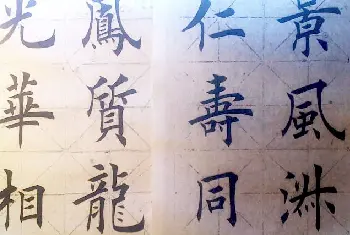 景風
仁壽同
鳳質龍
光華相